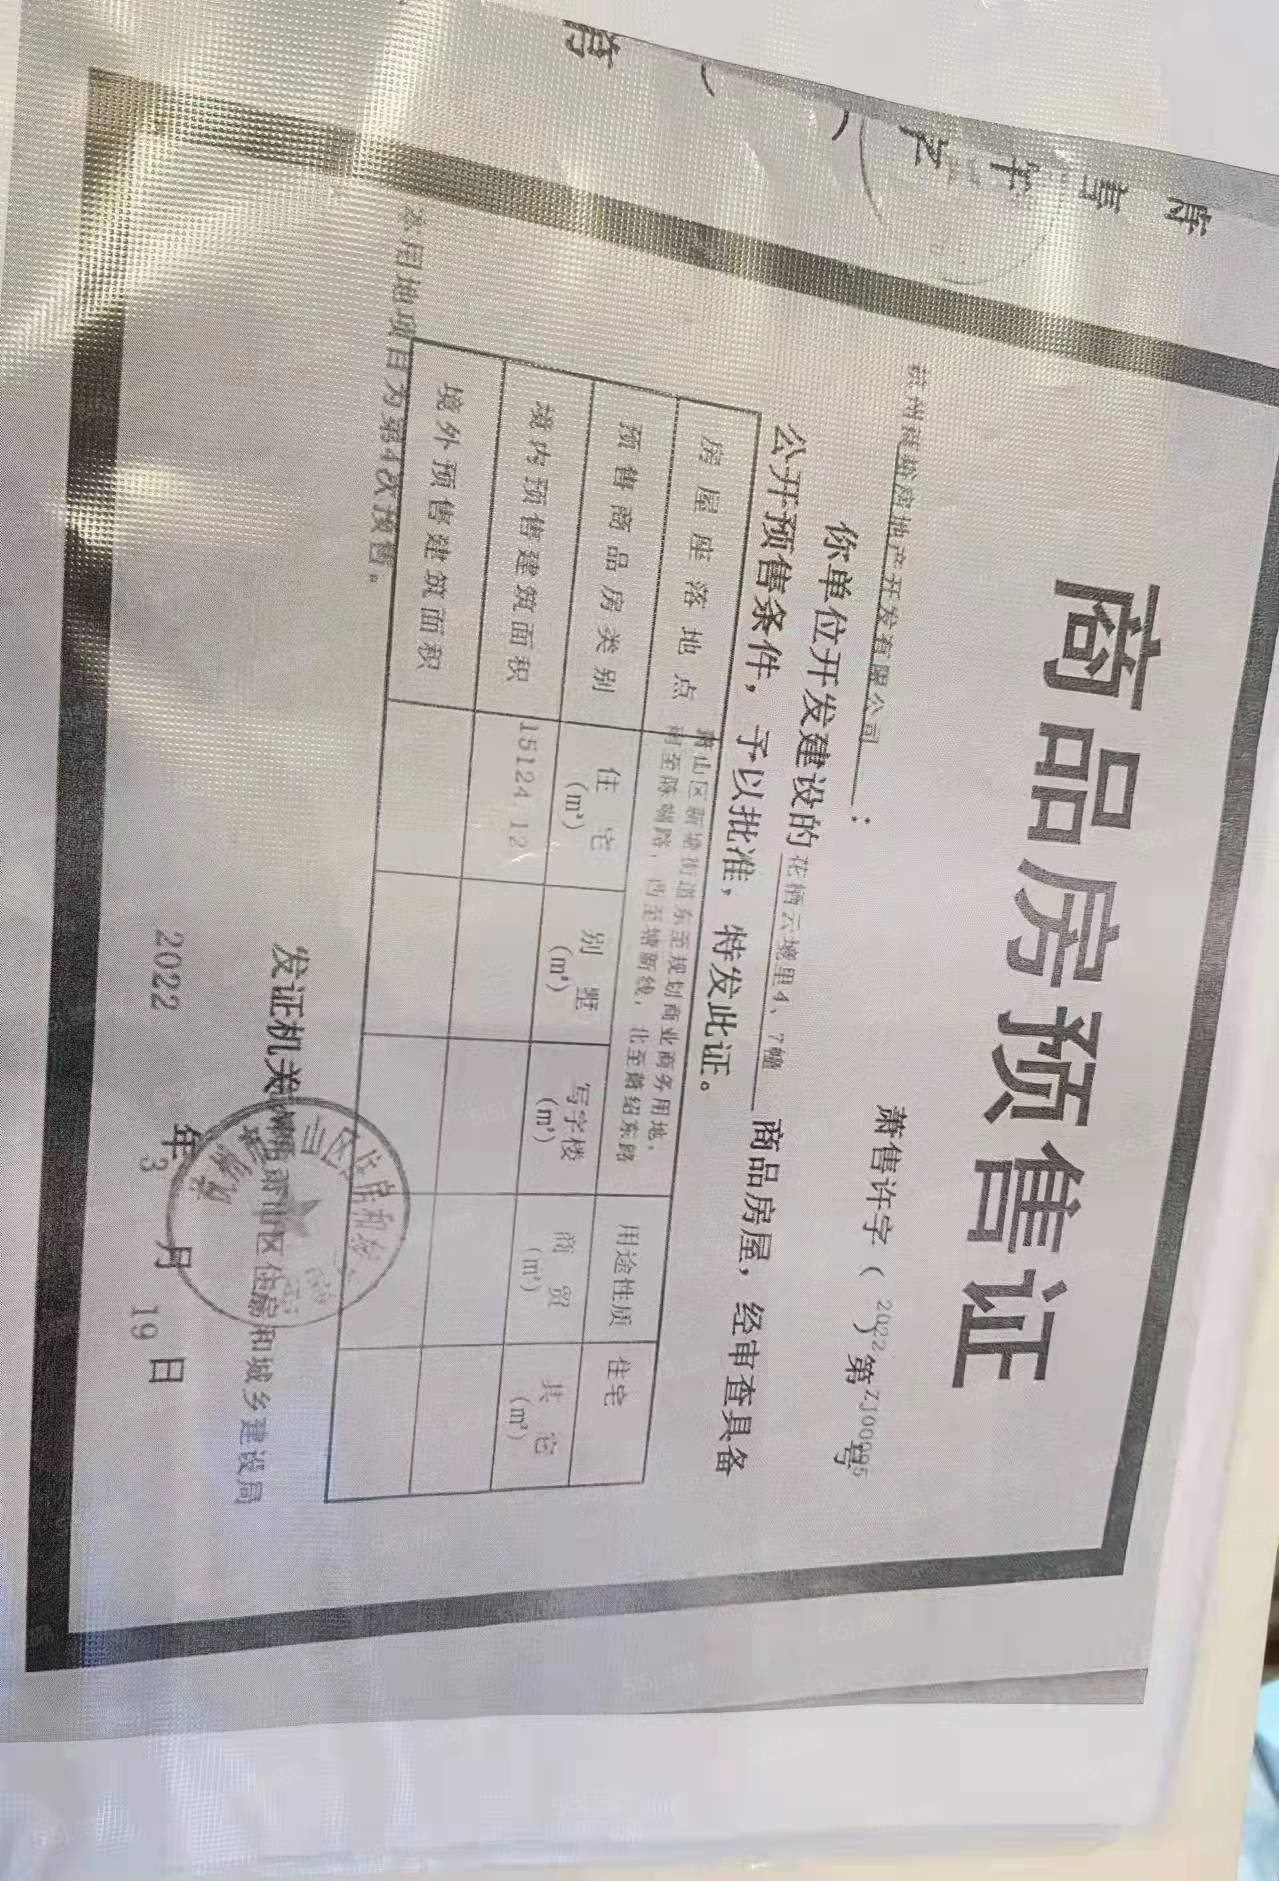 商品房预售证
萧售许字（2022）第ZJ00095号
房地产开发有限公司：
你单位开发建设的花栖云境里4、7幢商品房屋，经审查具备
公开预售条件，予以批准，特发此证。
房屋座落地点 萧山区新塘街道东至规划商业商务用地，南至陈 路，西至塘新线，北至萧绍东路 用途性质 住宅
预售商品房类别 住宅(m²) 别墅(m²) 写字楼(m²) 商贸(m²) 其它(m²)
境内预售建筑面积 15124.12
境外预售建筑面积
本用地项目为第4次预售。
发证机关 萧山区住房和城乡建设局
2022年3月19日